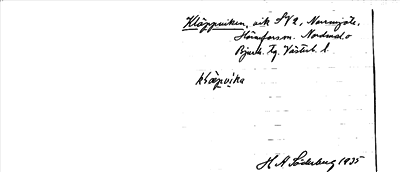 Kläppviken, vik SV2, Norrmjöle,
Hörneforsm. Nordmal. o
Bjurh. Tg. Västerb. l.
kläpvika
H A Söderberg 1935